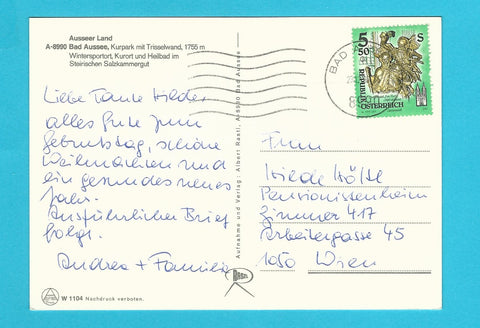 Ausseer Land
A-8990 Bad Aussee, Kurpark mit Trisselwand, 1755 m
Wintersportort, Kurort und Heilbad im
Steirischen Salzkammergut
Liebe Tante Hilde,
alles Gute zum
Geburtstag, schöne
Weihnachten und
ein gesundes neues
Jahr.
Ausführlicher Brief
folgt.
Andrea + Familie
W 1104 Nachdruck verboten.
Aufnahme und Verlag: Albert Rastl, A-8990 Bad Aussee
RASTL
BAD
5 S
50
REPUBLIK
ÖSTERREICH
Frau
Hilde Hölzl
Pensionistenheim
Zimmer 417
Arbeitergasse 45
1050 Wien